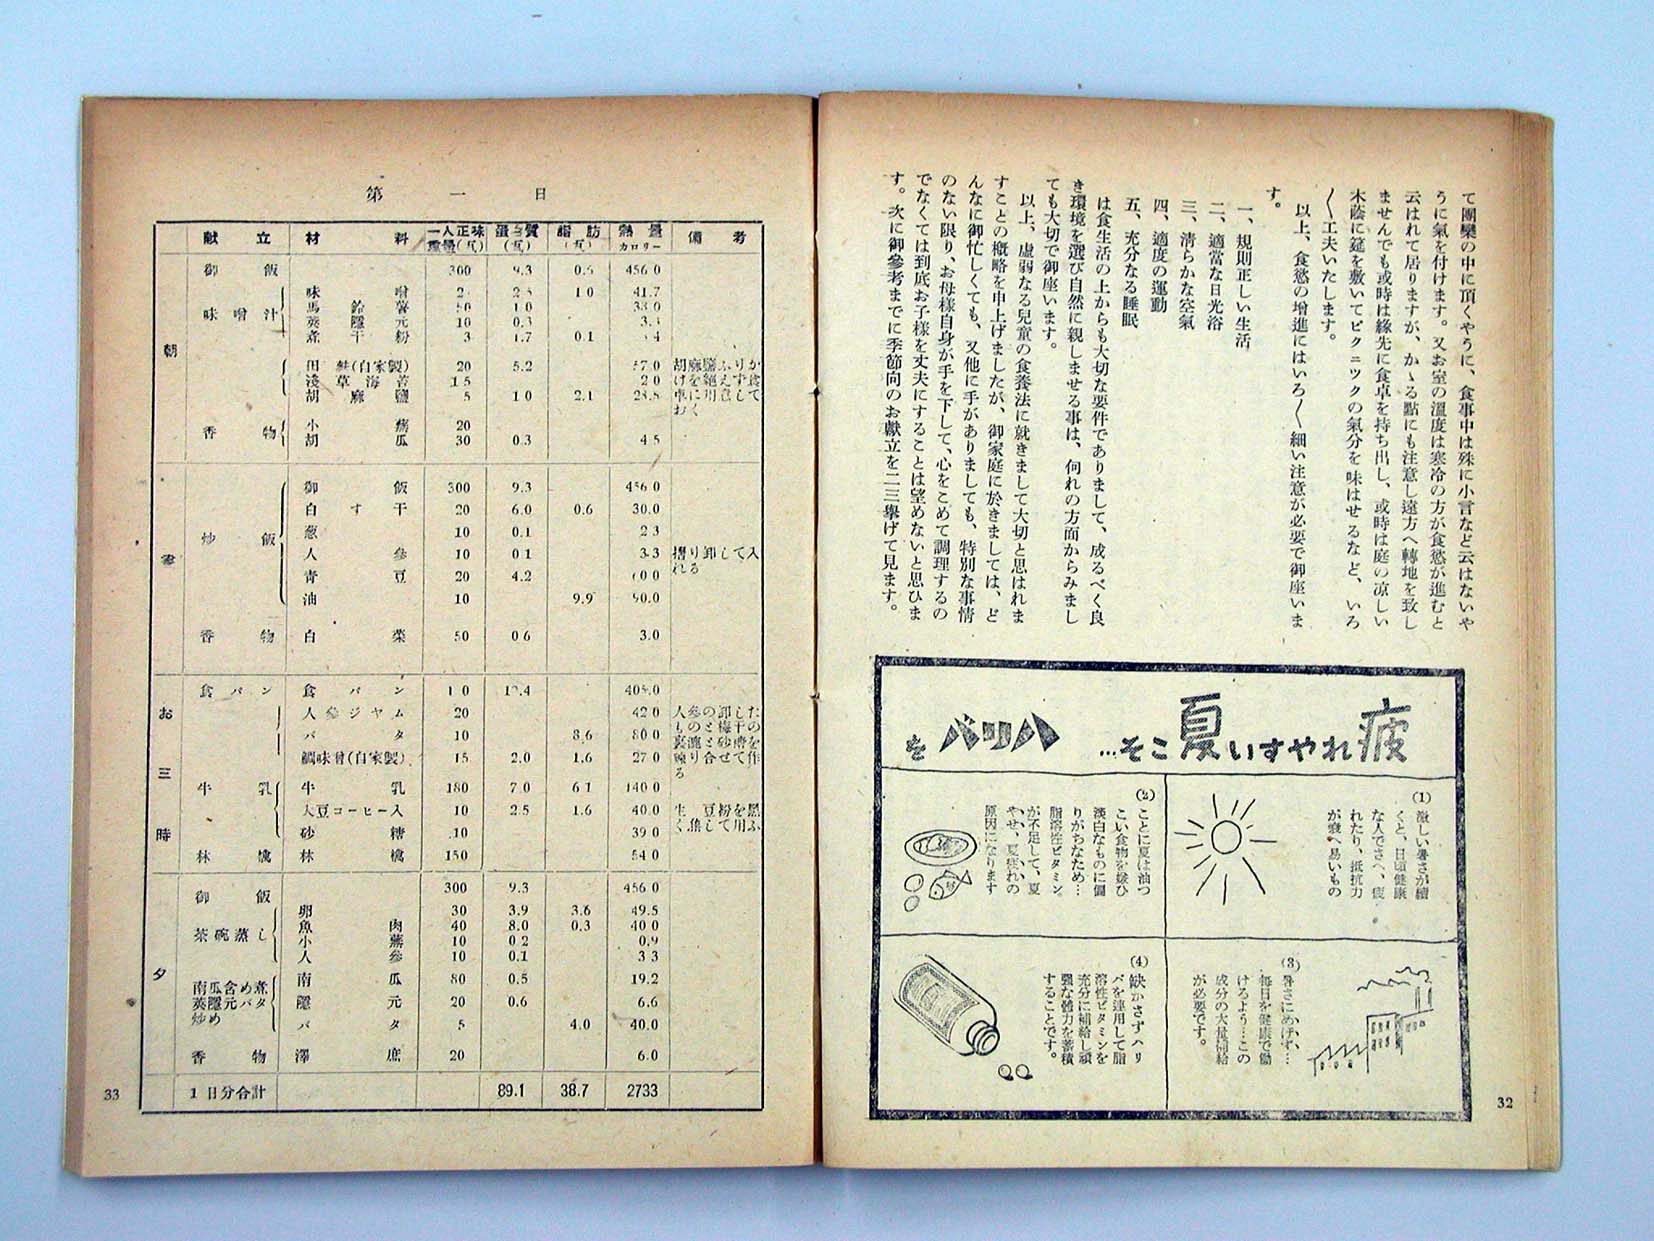 て團欒の中に頂くやうに、食事中は殊に小言など云はないや
うに氣を付けます。又お室の溫度は寒冷の方が食慾が進むと
云はれて居りますが、かゝる點にも注意し遠方へ轉地を致し
ませんでも或時は緣先に食卓を持ち出し、或時は庭の凉しい
木蔭に筵を敷いてピクニツクの氣分を味はせるなど、いろ
〱工夫いたします。
以上、食慾の增進にはいろ〱細い注意が必要で御座いま
す。
一、規則正しい生活
二、適當な日光浴
三、淸らかな空氣
四、適度の運動
五、充分なる睡眠
は食生活の上からも大切な要件でありまして、成るべく良
き環境を選び自然に親しませる事は、何れの方面からみまし
ても大切で御座います。
以上、虛弱なる兒童の食養法に就きまして大切と思はれま
すことの槪略を申上げましたが、御家庭に於きましては、ど
んなに御忙しくても、又他に手がありましても、特別な事情
のない限り、お母樣自身が手を下して、心をこめて調理するの
でなくては到底お子樣を丈夫にすることは望めないと思ひま
す。次に御參考までに季節向のお獻立を二三擧げて見ます。
疲れやすい夏こそ…
ハリバを
(1) 激しい暑さが續
くと、日頃健康
な人でさへ、疲
れたり、抵抗力
が衰へ易いもの
(2) ことに夏は油つ
こい食物を嫌ひ
淡白なものに偏
りがちなため…
脂溶性ビタミン
が不足して、夏
やせ、夏疲れの
原因になります
(3) 暑さにめげず…
每日を健康で働
けるよう…この
成分の大量補給
が必要です。
(4) 缺かさずハリ
バを連用して脂
溶性ビタミンを
充分に補給し頑
强な體力を蓄積
することです。
32
第一日
獻立 材料 一人正味重量(瓦) 蛋白質(瓦) 脂肪(瓦) 熱量カロリー 備考
朝
御飯 300 9.3 0.6 456.0
味噌汁 味噌 1.0 41.7
馬鈴薯 1.0 38.0
莢隱元 10 0.3
煮干粉 3 1.7 0.1
田麩(自家製) 20 5.2 57.0
淺草海苔 1.5 2.0
胡麻鹽 5 1.0 2.1 28.5
香物 小蕪 20
胡瓜 30 0.3 4.5
炒飯 御飯 300 9.3 456.0
白す干 20 6.0 0.6 30.0
葱 10 0.1 2.3
人參 10 0.1 3.3 摺り卸して入れる
靑豆 20 4.2 60.0
油 10 9.9 90.0
香物 白菜 50 0.6 3.0
お三時
食パン 食パン 405.0
人參ジャム 20 42.0
バタ 10 8.6 80.0
鯛味噌(自家製) 15 2.0 1.6 27.0
牛乳 牛乳 180 7.0 6.1 140.0
大豆コーヒー入 10 2.5 1.6 40.0
砂糖 10 39.0
林檎 林檎 150 54.0
夕
御飯 300 9.3 456.0
茶碗蒸し 卵 30 3.9 3.6 49.5
魚肉 40 8.0 0.3 40.0
小蕪 10 0.2 0.9
人參 10 0.1 3.3
南瓜含め煮 南瓜 80 0.5 19.2
莢隱元バタ炒め 隱元 20 0.6 6.6
バタ 5 4.0 40.0
香物 澤庵 20 6.0
1日分合計 89.1 38.7 2733
33